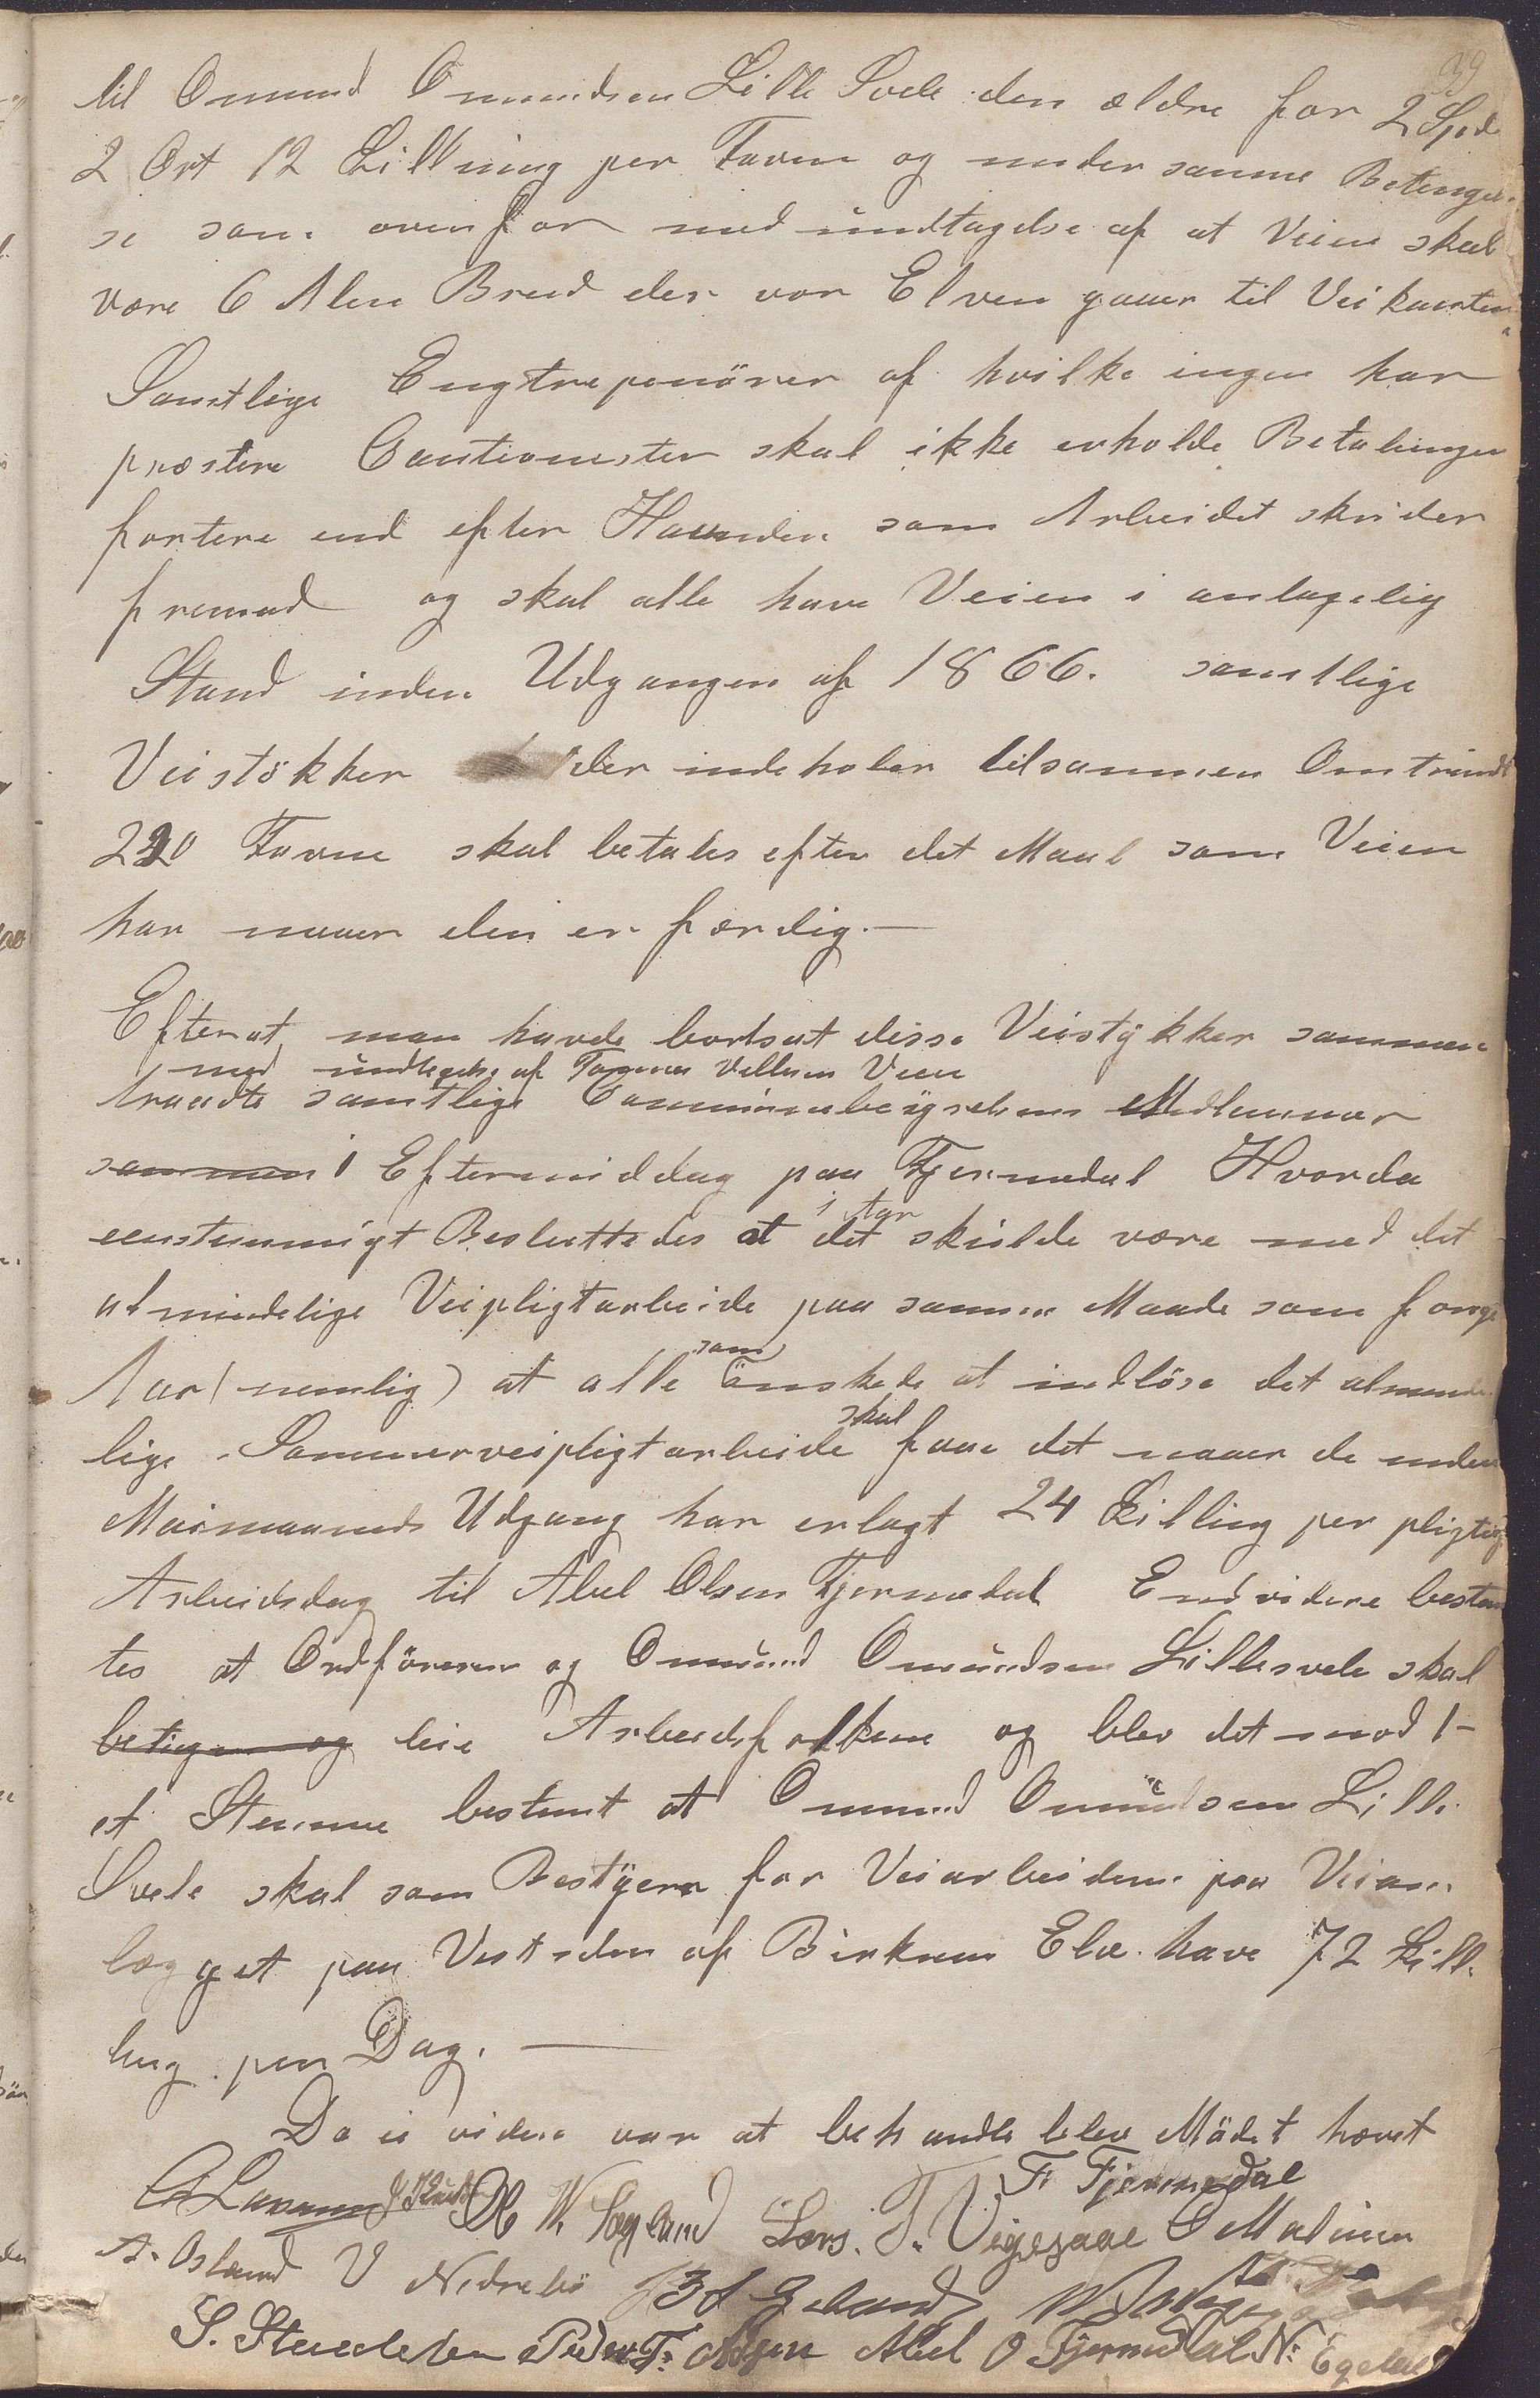 39
til Omund Omundsen Lille Svele den ældre for 2 Spd
2 Ort 12 Skilling per Favn og under samme Betengel-
se som ovenfor med undtagelse af at Veien skal
være 6 Alen Breed der vor Elven gaaer til Veikanten
Samtlige Engtreprenörer af hvilke ingen har
præstere Cautionister skal ikke erholde Betalingen
fortere end efter Haanden som Arbeidet skrider
fremad og skal alle have Veien i antagelig
Stand inden Udgangen af 1866. samtlige
Veistökker der indeholer tilsammen Omtrindt
220 Favne skal betales efter det Maal som Veien
har naaer den er færdig.—
Efterat man havde bortsat disse Veistykker sammen
med undtagelse af Vellesen Veen
traadte samtlige Communebestyrelsens Medlemmer
sammen i Eftermiddag paa Fjermedal Hvorda
eenstemmigt Besluttedes at det skulde være med det
i Aar
almindelige Veipligtarbeide paa samme Maade som forige
Aar (nemlig) at alle som önskede at indlöse det alminde
lige Sommerveipligtarbeide skal faae det naaer de inden
Maimaaneds Udgang har erlagt 24 Skilling per pligtig
Arbeidsdag til Abel Olsen Fjermedal Endvidere bestem
tes at Ordföreren og Omund Omundsen Lillesvele skal
betinge og leie Arbeidsfolkene og blev det mod 1-
et Stemme bestemt at Omund Omundsen Lille
Svele skal som Bestyrer for Veiarbeidene paa Veian-
lægget paa Vestsiden af Birkrem Elv have 72 Skil-
ling per Dag.—
Da ei videre var at behandle blev Mödet hævet
F. Fjermedal
W. Søyland Lars. T. Vigesaae O Malmen
A. Osland V Nedrebö Egeland
S. Peder T. Abel O Fjermedal N. Egeland